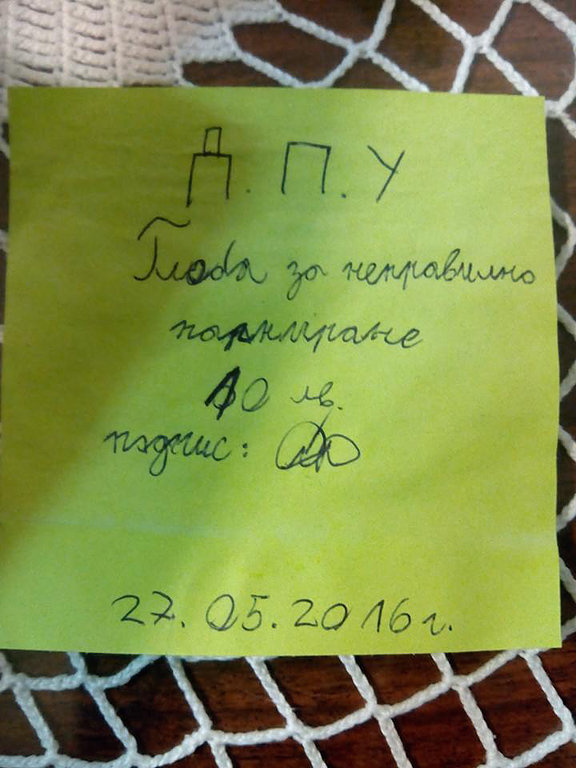 Д. П. У
Глоба за неправилно
паркиране
10 лв.
подпис:
27.05.2016 г.